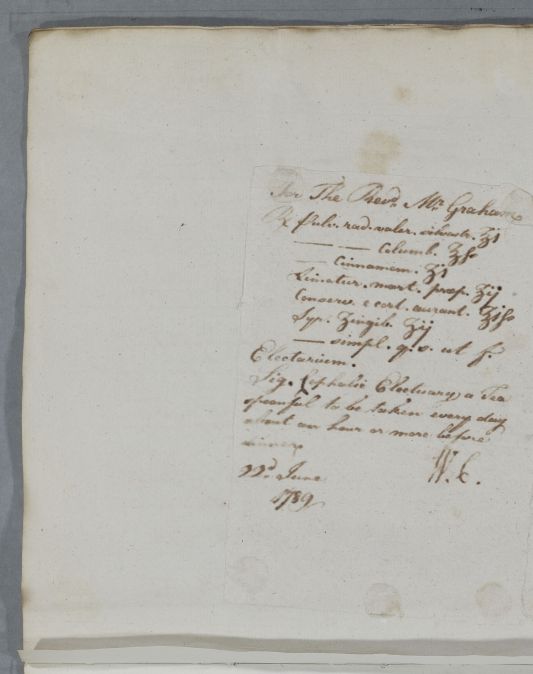 For The Revd. Mr. Graham
℞ Pulv. rad. valer. silvestr. ℥i
— — Columb. ℥ſs
— Cinnamom. ʒi
Limatur. mart. prep. ʒij
Conserv. e cort. aurant. ℥iſs
Syr. Zingib. ℥ij
— simpl. q. s. ut f.
Electarium.
Sig. Cephalic Electuary, a Tea
spoonful to be taken every day
about an hour or more before
dinner
W. C.
22d. June
1789